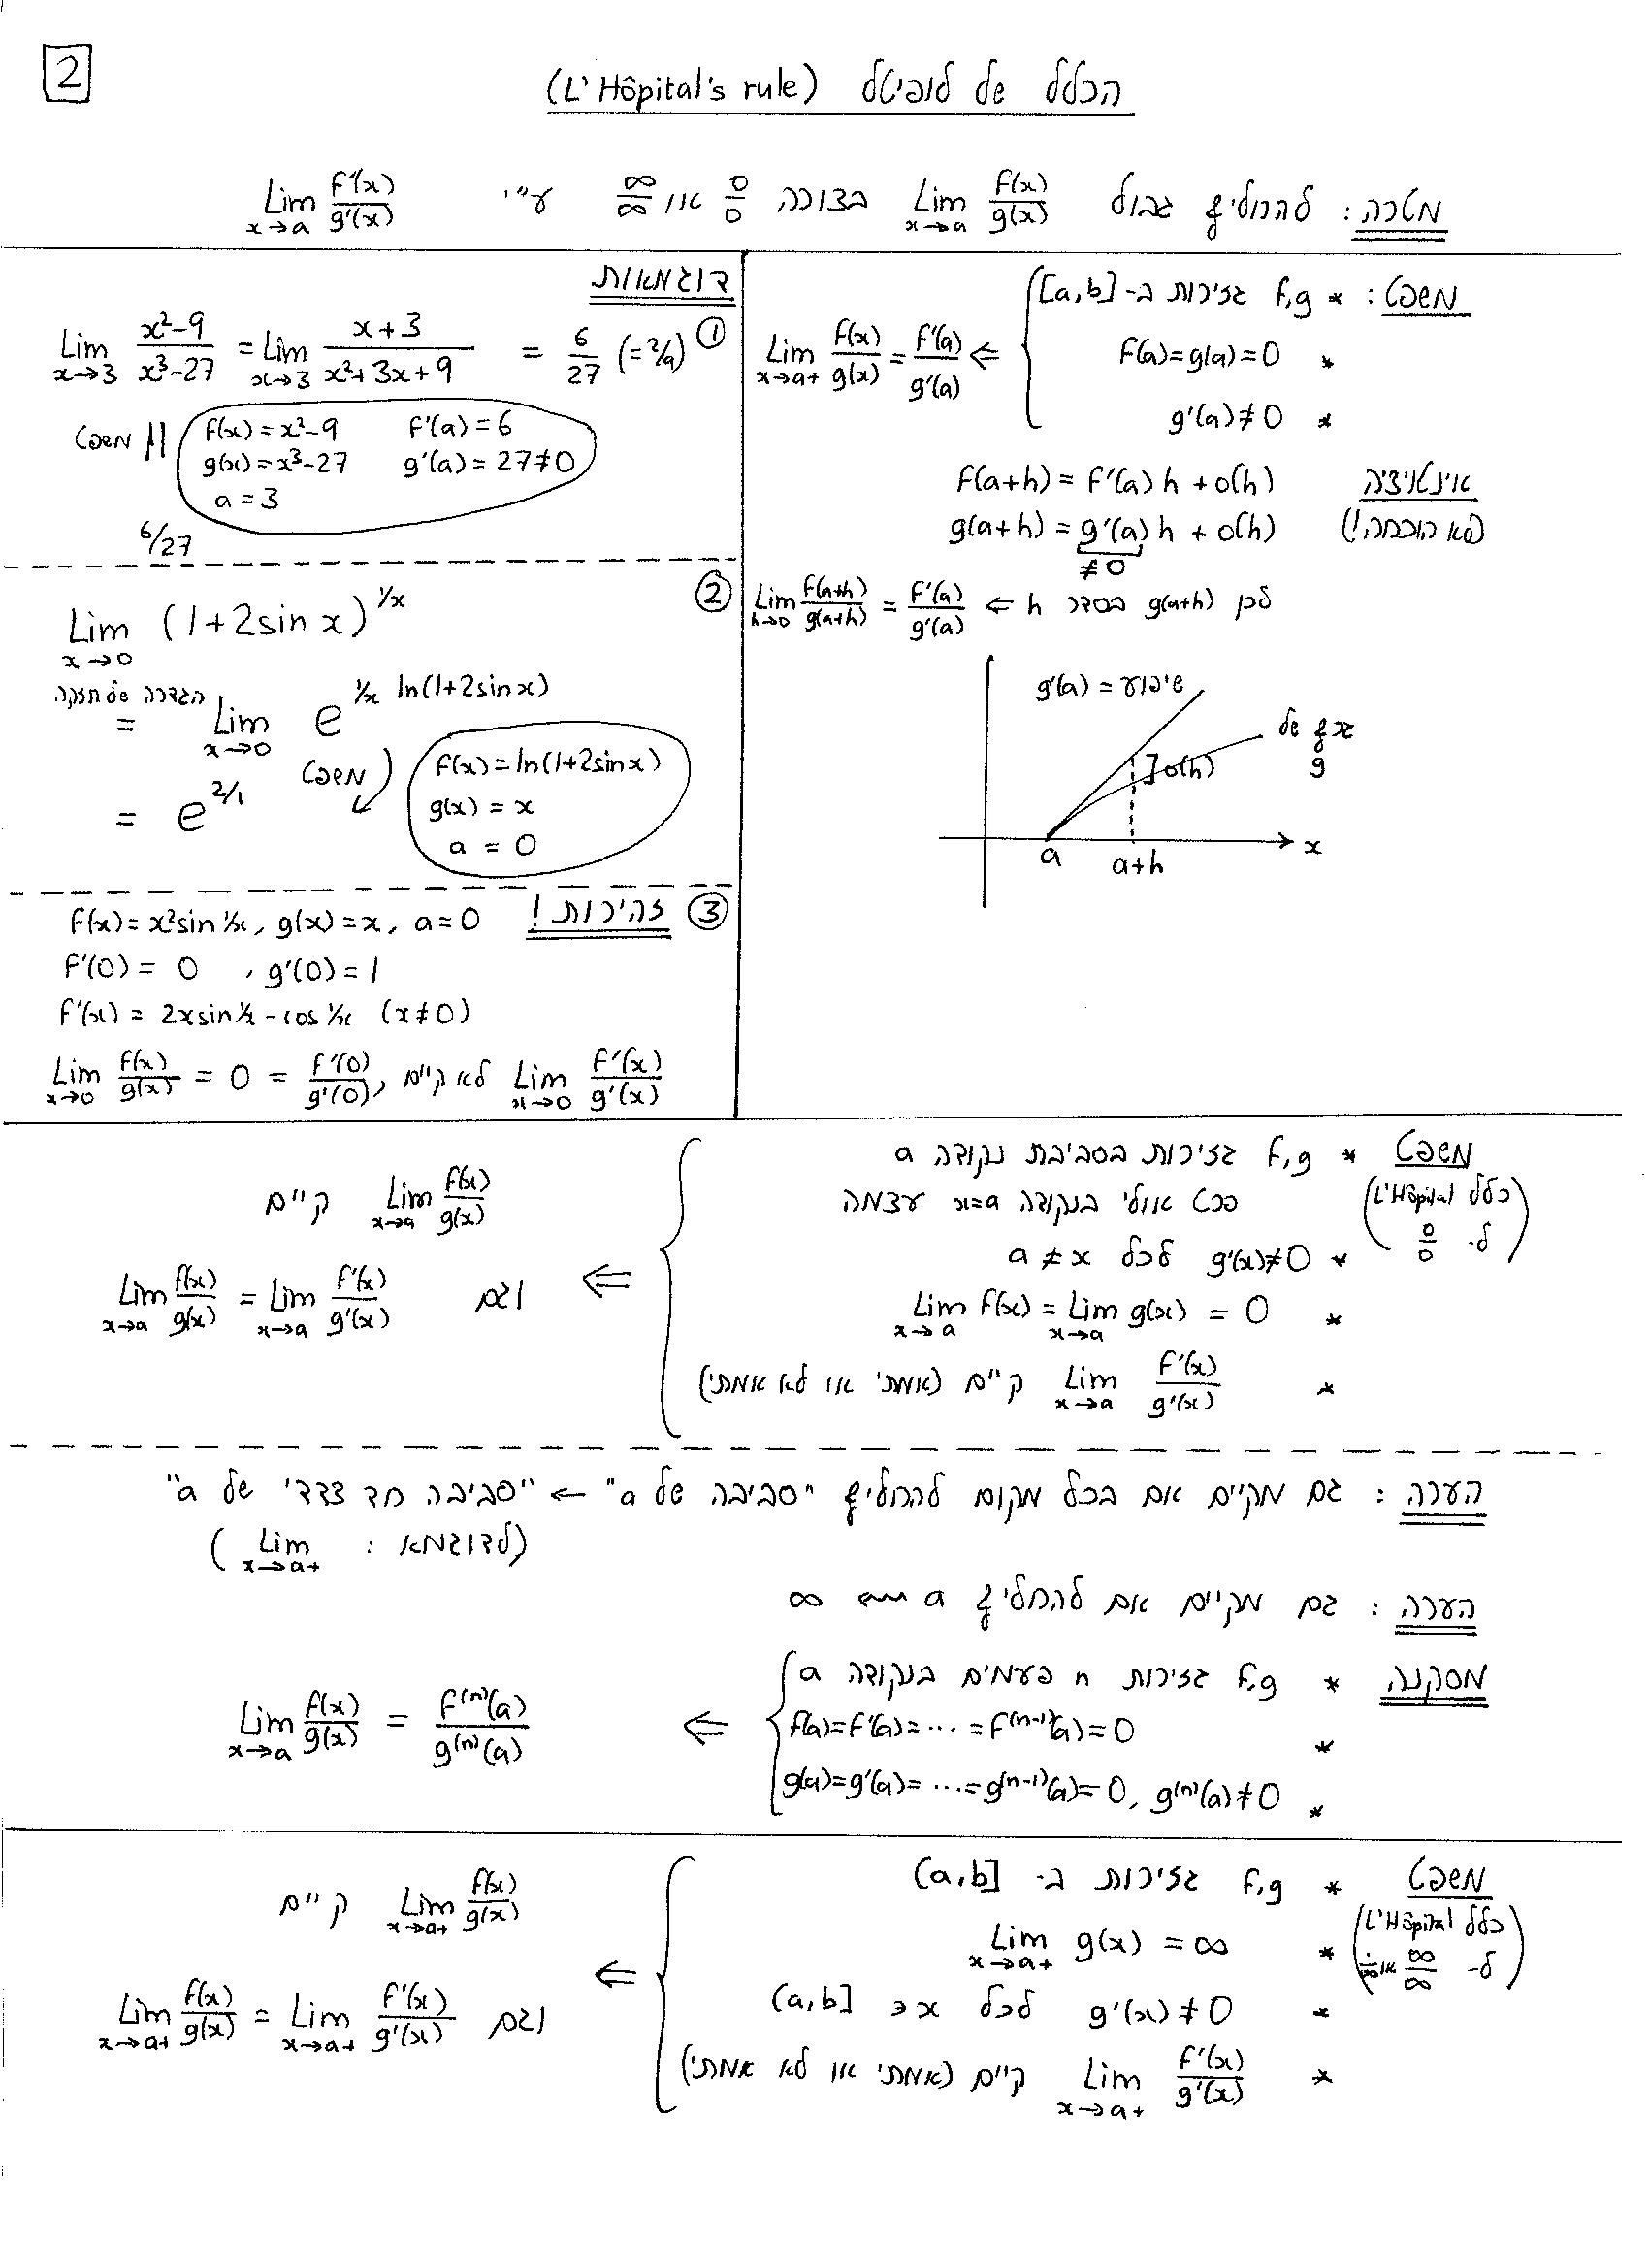 2
הכלל של לופיטל (L'Hôpital's rule)
מטרה: להחליף גבול Lim x→a f(x)/g(x) בצורה 0/0 או ∞/∞ ע"י Lim x→a f'(x)/g'(x)
משפט: * f,g גזירות ב- [a,b)
* f(a)=g(a)=0
* g'(a)≠0
⇐ Lim x→a+ f(x)/g(x) = f'(a)/g'(a)
אינטואיציה f(a+h) = f'(a)h + o(h)
(לא הוכחה!) g(a+h) = g'(a)h + o(h)
≠0
לכן g(a+h) בסדר h ⇐ Lim h→0 f(a+h)/g(a+h) = f'(a)/g'(a)
שיפוע = g'(a)
גרף של
g
]o(h)
a a+h x
דוגמאות
① Lim x→3 (x²-9)/(x³-27) = Lim x→3 (x+3)/(x²+3x+9) = 6/27 (=2/9)
משפט || f(x)=x²-9 f'(a)=6
g(x)=x³-27 g'(a)=27≠0
a=3
6/27
② Lim x→0 (1+2sin x)^{1/x}
הגדרה של חזקה
= Lim x→0 e^{1/x ln(1+2sinx)}
משפט f(x)=ln(1+2sinx)
g(x)=x
a=0
= e^{2/1}
③ זהירות! f(x)=x²sin 1/x, g(x)=x, a=0
f'(0)=0, g'(0)=1
f'(x)=2xsin 1/x - cos 1/x (x≠0)
Lim x→0 f(x)/g(x) = 0 = f'(0)/g'(0), לא קיים Lim x→0 f'(x)/g'(x)
משפט * f,g גזירות בסביבת נקודה a
(כלל L'Hôpital ל- 0/0) פרט אולי בנקודה x=a עצמה
* g'(x)≠0 לכל x≠a
* Lim x→a f(x) = Lim x→a g(x) = 0
* Lim x→a f'(x)/g'(x) קיים (אמתי או לא אמתי)
⇐ Lim x→a f(x)/g(x) קיים
וגם Lim x→a f(x)/g(x) = Lim x→a f'(x)/g'(x)
הערה: גם מקיים אם בכל מקום להחליף "סביבה של a" ← "סביבה חד צדדי של a"
(לדוגמא: Lim x→a+)
הערה: גם מקיים אם להחליף a ← ∞
מסקנה * f,g גזירות n פעמים בנקודה a
* f(a)=f'(a)=...=f^{(n-1)}(a)=0
* g(a)=g'(a)=...=g^{(n-1)}(a)=0, g^{(n)}(a)≠0
⇐ Lim x→a f(x)/g(x) = f^{(n)}(a)/g^{(n)}(a)
משפט * f,g גזירות ב- (a,b]
(כלל L'Hôpital ל- ∞/∞ או) * Lim x→a+ g(x) = ∞
* g'(x)≠0 לכל x∈(a,b]
* Lim x→a+ f'(x)/g'(x) קיים (אמתי או לא אמתי)
⇐ Lim x→a+ f(x)/g(x) קיים
וגם Lim x→a+ f(x)/g(x) = Lim x→a+ f'(x)/g'(x)